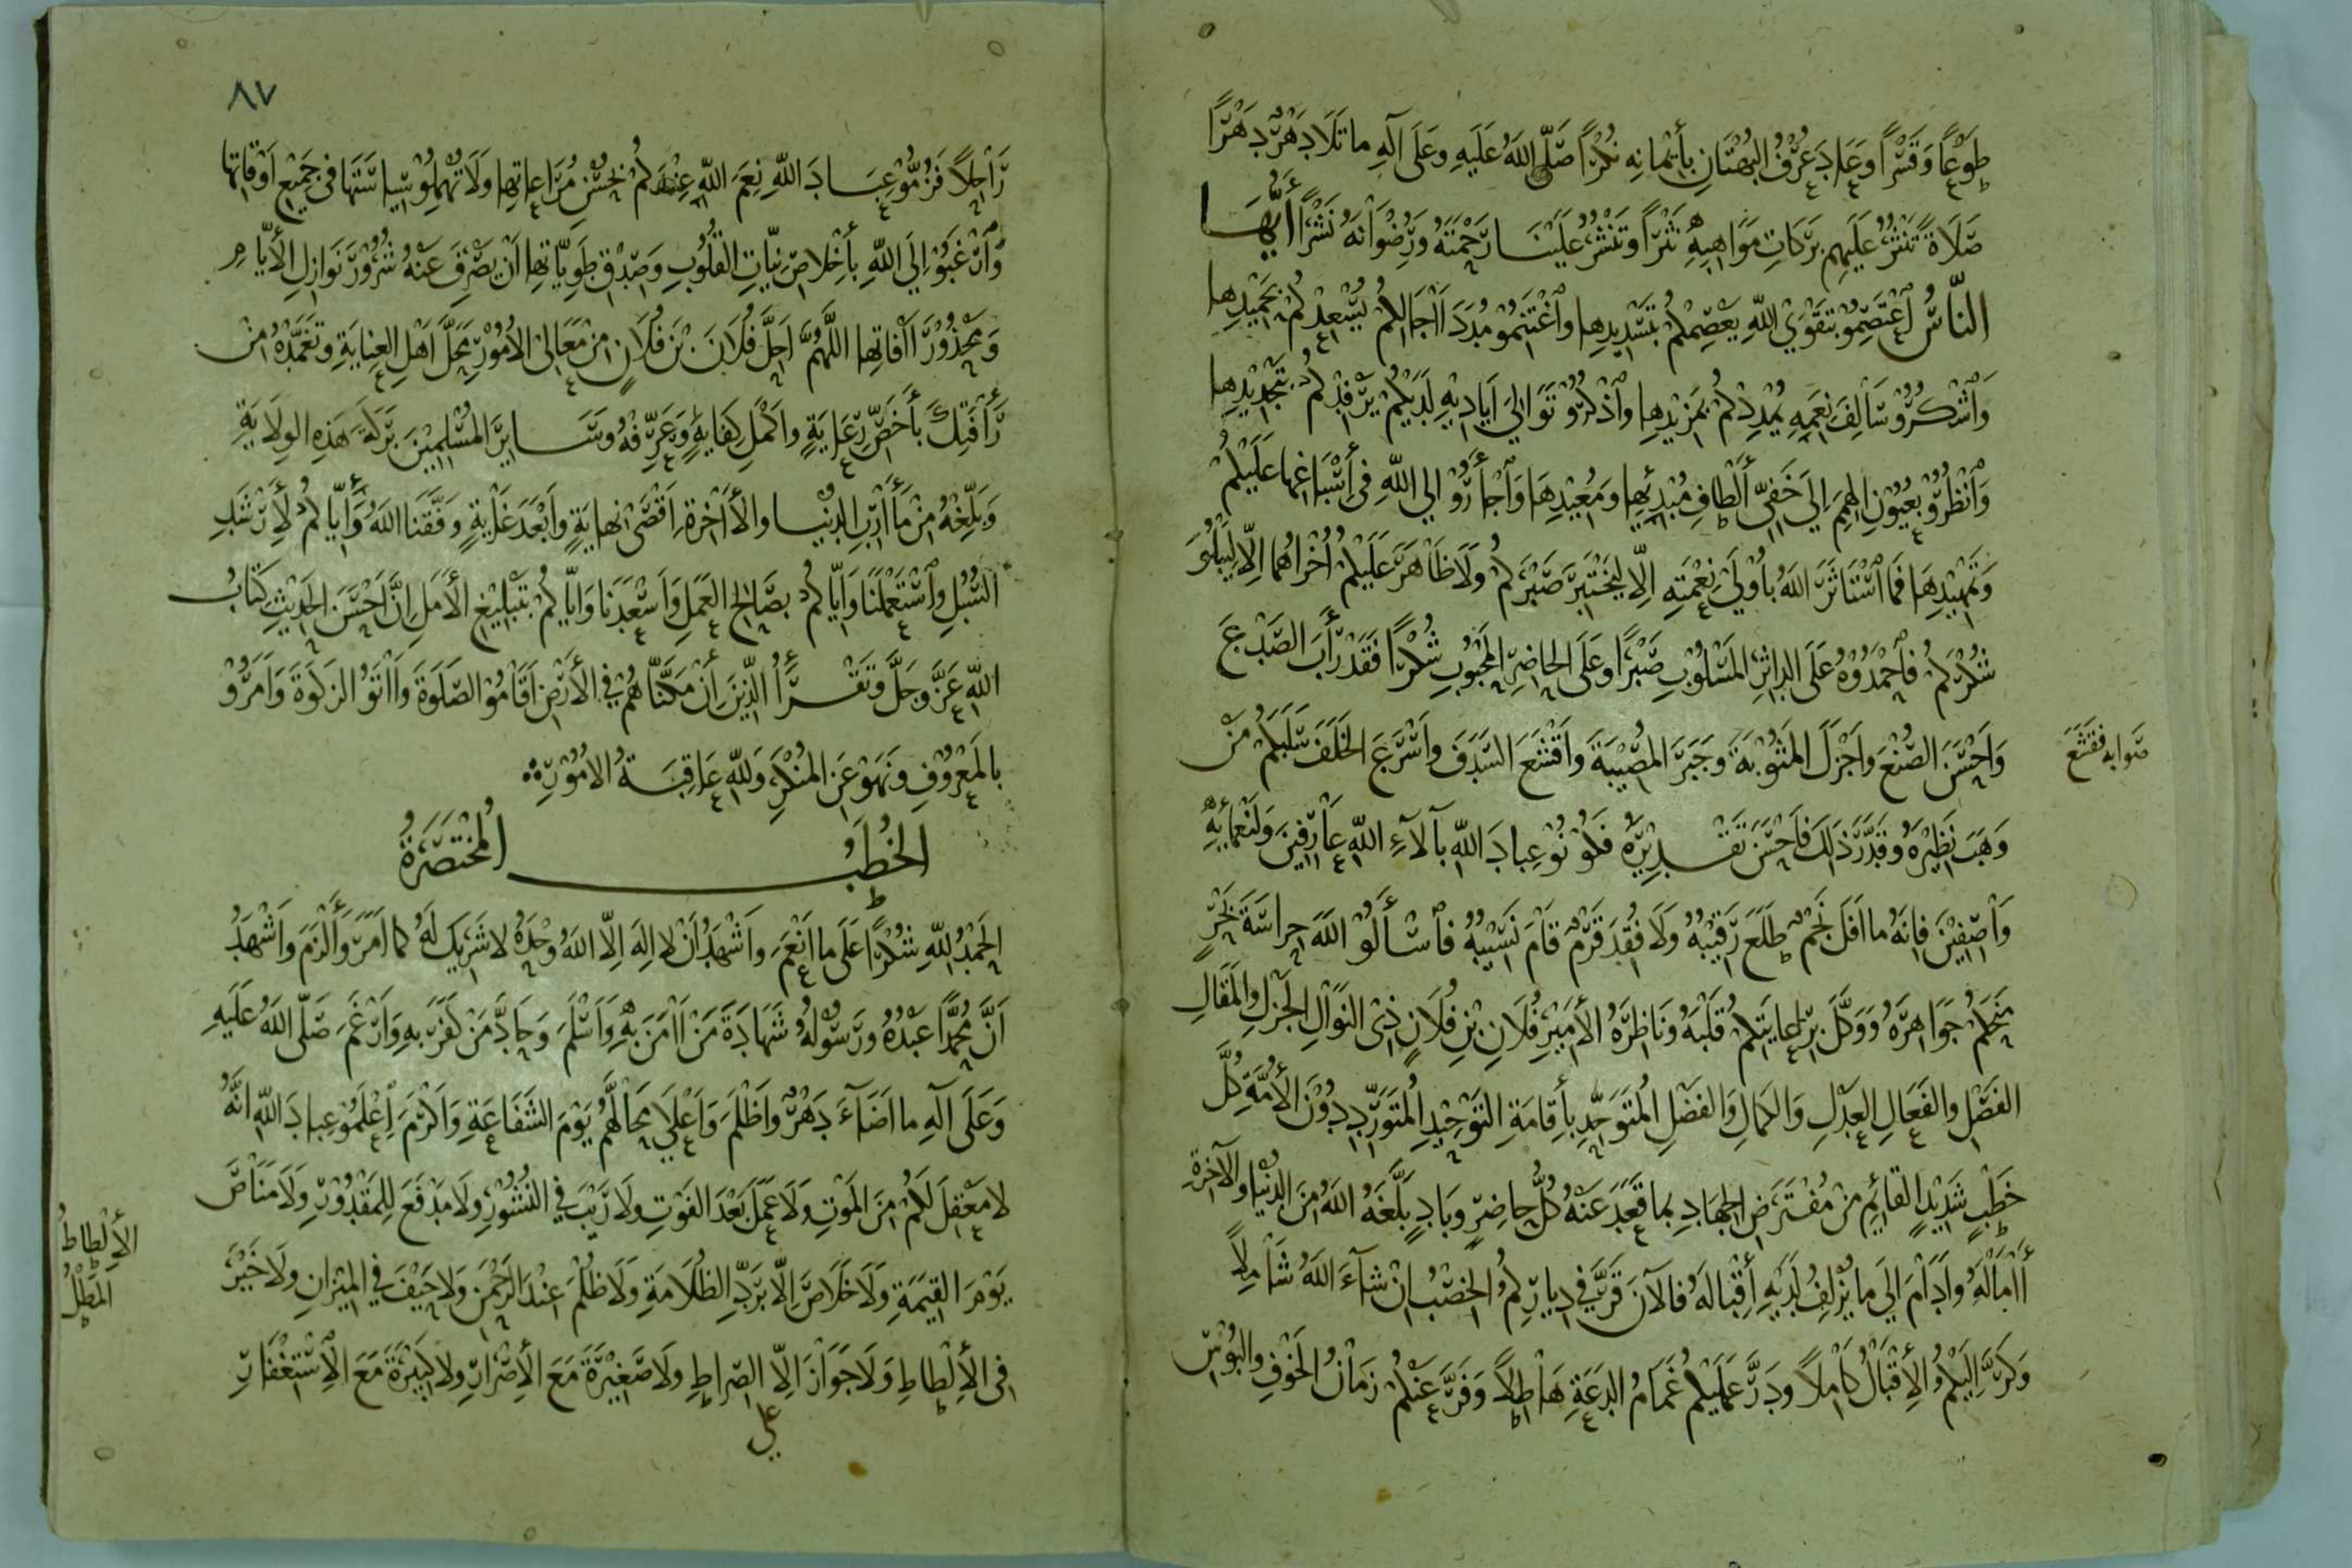 طَوْعًا وَقَسْرًا وَعَادَ عُرْفُ البُهْتَانِ بِأَيْمَانِهِ نُكْرًا صَلَّى اللهُ عَلَيهِ وعَلَى آلِهِ ما تَلَا دَهْرٌ دَهْرًا
صَلَاةً تَنْثُرُ عَلَيهِم بَرَكَاتِ مَوَاهِبِهِ نَثْرًا وتَنْشُرُ عَلَيْنَا رَحْمَتَهُ وَرِضْوَانَهُ نَشْرًا أَيُّهَا
النَّاسُ اعْتَصِمُوْ بِتَقْوَى اللهِ يَعْصِمْكُمْ بِتَسْدِيدِها واغْتَنِمُوْ مُدَدَ اآجَالِكُمْ يُسْعِدْكُمْ بِحَمِيْدِها
وَاشْكُرُوْ سَالِفَ نِعَمِهِ يُمْدِدْكُمْ بِمَزِيْدِها واذْكُرُوْ تَوَالِيَ أَيَادِيْهِ لَدَيْكُمْ يَرْفِدْكُمْ بِتَجْدِيْدِها
وَانْظُرُوْ بِعُيُوْنِ الهِمَمِ إِلَى خَفِيِّ أَلْطَافِ مُبْدِئِها وَمُعِيْدِهَا وَاجْأَرُوْ إلى اللهِ فى أَسْبَاغِها عَلَيْكُمْ
وَتَمْهِيْدِهَا فَمَا اسْتَاثَرَ اللهُ بِأُوْلَى نِعْمَتِهِ إِلّا لِيَخْتَبِرَ صَبْرَكُمْ وَلَا ظَاهَرَ عَلَيْكُمْ اُخْرَاهُما إِلّا لِيَبْلُوَ
شُكْرَكُمْ فَاحْمَدُوْهُ عَلَى الدَاثِرِ المَسْلُوْبِ صَبْرًا وعَلَى الحاضِرِ المَحْبُوْبِ شُكْرًا فَقَدْ رَأَبَ الصَدْعَ
وَاَحْسَنَ الصُنْعَ واَجْزَلَ المَثُوْبَةَ وجَبَرَ المُصِيْبَةَ واَقْشَعَ السَدَفَ واَسْرَعَ الخَلَفَ سَلَبَكُمْ مَنْ
صَوابه فقَشَعَ
وَهَبَ نَظِيْرَهُ وقَدَّرَ ذَلِكَ فَاَحْسَنَ تَقْدِيْرَهُ فَكُوْنُوْ عِبادَ اللهِ بآلآءِ اللهِ عَارِفِينَ ولِنَعْمَائِهِ
وَاصِفِيْنَ فإِنَّهُ ما اَفَلَ نَجْمٌ طَلَعَ رَقِيْبُهُ ولَا فُقِدَ قَرْمٌ قَامَ نَسِيْبُهُ فاسْأَلُوْ اللهَ حِراسَةَ بَحْرٍ
مَنَحَكُمْ جَوَاهِرَهُ وَوَكَّلَ بِرِعايَتِكُمْ قَلْبَهُ وَنَاظِرَهُ الأَمِيْرِ فُلَانِ بْنِ فُلَانٍ ذِى النَوَالِ الجَزْلِ والمَقَالِ
الفَصْلِ والفَعَالِ العَدْلِ وَالكَمالِ وَالفَضْلِ المُتَوَحِّدِ بأَِقَامَةِ التَوْحِيْدِ المُتَوَرِّدِ دُوْنَ الأُمَّةِ كُلَّ
خَطْبٍ شَدِيْدٍ القائِمِ مِنْ مُفْتَرَضِ الجِهادِ بِما قَعَدَ عَنْهُ كُلُّ حاضِرٍ وبَادٍ بَلَّغَهُ اللهُ مِنَ الدُنْيا والآخِرَةِ
اآمَالَهُ وأَدَامَ إِلَى ما يُزْلِفُ لَدَيْهِ أَقْبَالَهُ فالآنَ قَرَّ في دِيارِكُمْ الخِصْبُ إنْ شآءَ اللهُ شَامِلًا
وَكَرَّ إِلَيْكُمْ الأِقْبَالُ كَامِلًا ودَرَّ عَلَيْكُمْ غَمَامُ الدَعَةِ هَاطِلًا وَفَرَّ عَنْكُمْ زَمَانُ الخَوْفِ والبُوْسِ
٨٧
رَاحِلًا فَرُمُّوْ عِبَادَ اللهِ نِعَمَ اللهِ عِنْدَكُمْ بِحُسْنِ مُرَاعَاتِها وَلَا تُهْمِلُوْ سِيَاسَتَهَا فى جَمِيْعِ اَوْقَاتِها
وَارْغَبُوْ إِلَى اللهِ بأَِخْلَاصِ نِيَّاتِ القُلُوْبِ وَصِدْقِ طَوِيَّاتِها اَنْ يَصْرِفَ عَنْهُ شُرُوْرَ نَوَازِلِ الأَيَّامِ
وَمَحْذُوْرَ اآفَاتِها اللَّهُمَّ اَحِلَّ فُلَانَ بْنَ فُلَانٍ مِنْ مَعَالِىْ الأُمُوْرِ مَحَلَّ اَهْلِ العِنايَةِ وتَغَمَّدْهُ مِنْ
رَأْفَتِكَ بأَخَصِّ رِعَايَةٍ واَكْمَلِ كِفَايَةٍ وَعَرِّفْهُ وسَايِرَ المُسْلِمِيْنَ بَرَكَةَ هَذِهِ الوِلَايَةِ
وَبَلِّغْهُ مِنْ مَأَارِبِ الدُنْيا والأَاخِرَةِ اَقْصَىْ نِهايَةٍ واَبْعَدَ غَايَةٍ وفَّقَنا اللهُ وأِيَّاكُمْ لأَِرْشَدِ
السُبُلِ واسْتَعْمَلَنَا وَاِيَّاكُمْ بِصَالِحِ العَمَلِ وَاَسْعَدَنَا وَاِيَّاكُمْ بِتَبْلِيْغِ الأَمَلِ إِنَّ اَحْسَنَ الحَدِيْثِ كِتَابُ
اللهِ عَزَّ وجَلَّ وتَقْرَأُ الَّذِيْنَ اِنْ مَكَّنَّاهُمْ فِي الأَرْضِ اَقَامُوْ الصَلَوةَ واَاتَوُ الزَكَوةَ وَاَمَرُوْ
بِالمَعْرُوْفِ ونَهَوْ عَنِ المُنْكَرِ وَلِلَّهِ عَاقِبَةُ الاُمُوْرِ
الخُطَبُ المُخْتَصَرَةُ
الحَمْدُ لِلّهِ شُكْرًا عَلَى ما اَنْعَمَ واَشْهَدُ اَنْ لا إِلَهَ إِلّا اللهُ وَحْدَهُ لا شَرِيْكَ لَهُ كَما اَمَرَ وأَلْزَمَ واَشْهَدُ
اَنَّ مُحَمَّدًا عَبْدُهُ ورَسُوْلُهُ شَهَادَةَ مَنْ اآمَنَ بِهِ وَاَسْلَمَ وَحَادَّ مَنْ كَفَرَ بِهِ وَاَرْغَمَ صَلَّى اللهُ عَلَيهِ
وَعَلَى آلِهِ ما اَضَآءَ دَهْرٌ واَظْلَمَ وَاَعْلَى مَحَالَّهُمْ يَوْمَ الشَفَاعَةِ وَاَكْرَمَ اِعْلَمُوْ عِبادَ اللهِ اَنَّهُ
لا مَعْقِلَ لَكُمْ مِنَ المَوْتِ وَلَا عَمَلَ بَعْدَ الفَوْتِ ولَا رَيْبَ فِي النُشُوْرِ ولَا مَدْفَعَ لِلمَقْدُوْرِ ولَا مَنَاصَ
يَوْمَ القِيَمَةِ ولَا خَلَاصَ إِلّا بِرَدِّ الظُلَامَةِ ولَا ظُلْمَ عِنْدَ الرَحْمَنِ ولَا حَيْفَ فِي المِيْزَانِ ولَا خَيْرَ
الأِلْطاطُ
المَطْلُ
فى الأِلْطَاطِ وَلَا جَوَازَ إِلّا الصِراطِ ولَا صَغِيْرَةَ مَعَ الأِصْرَارِ ولا كَبِيْرَةَ مَعَ الأِسْتِغْفَارِ
على